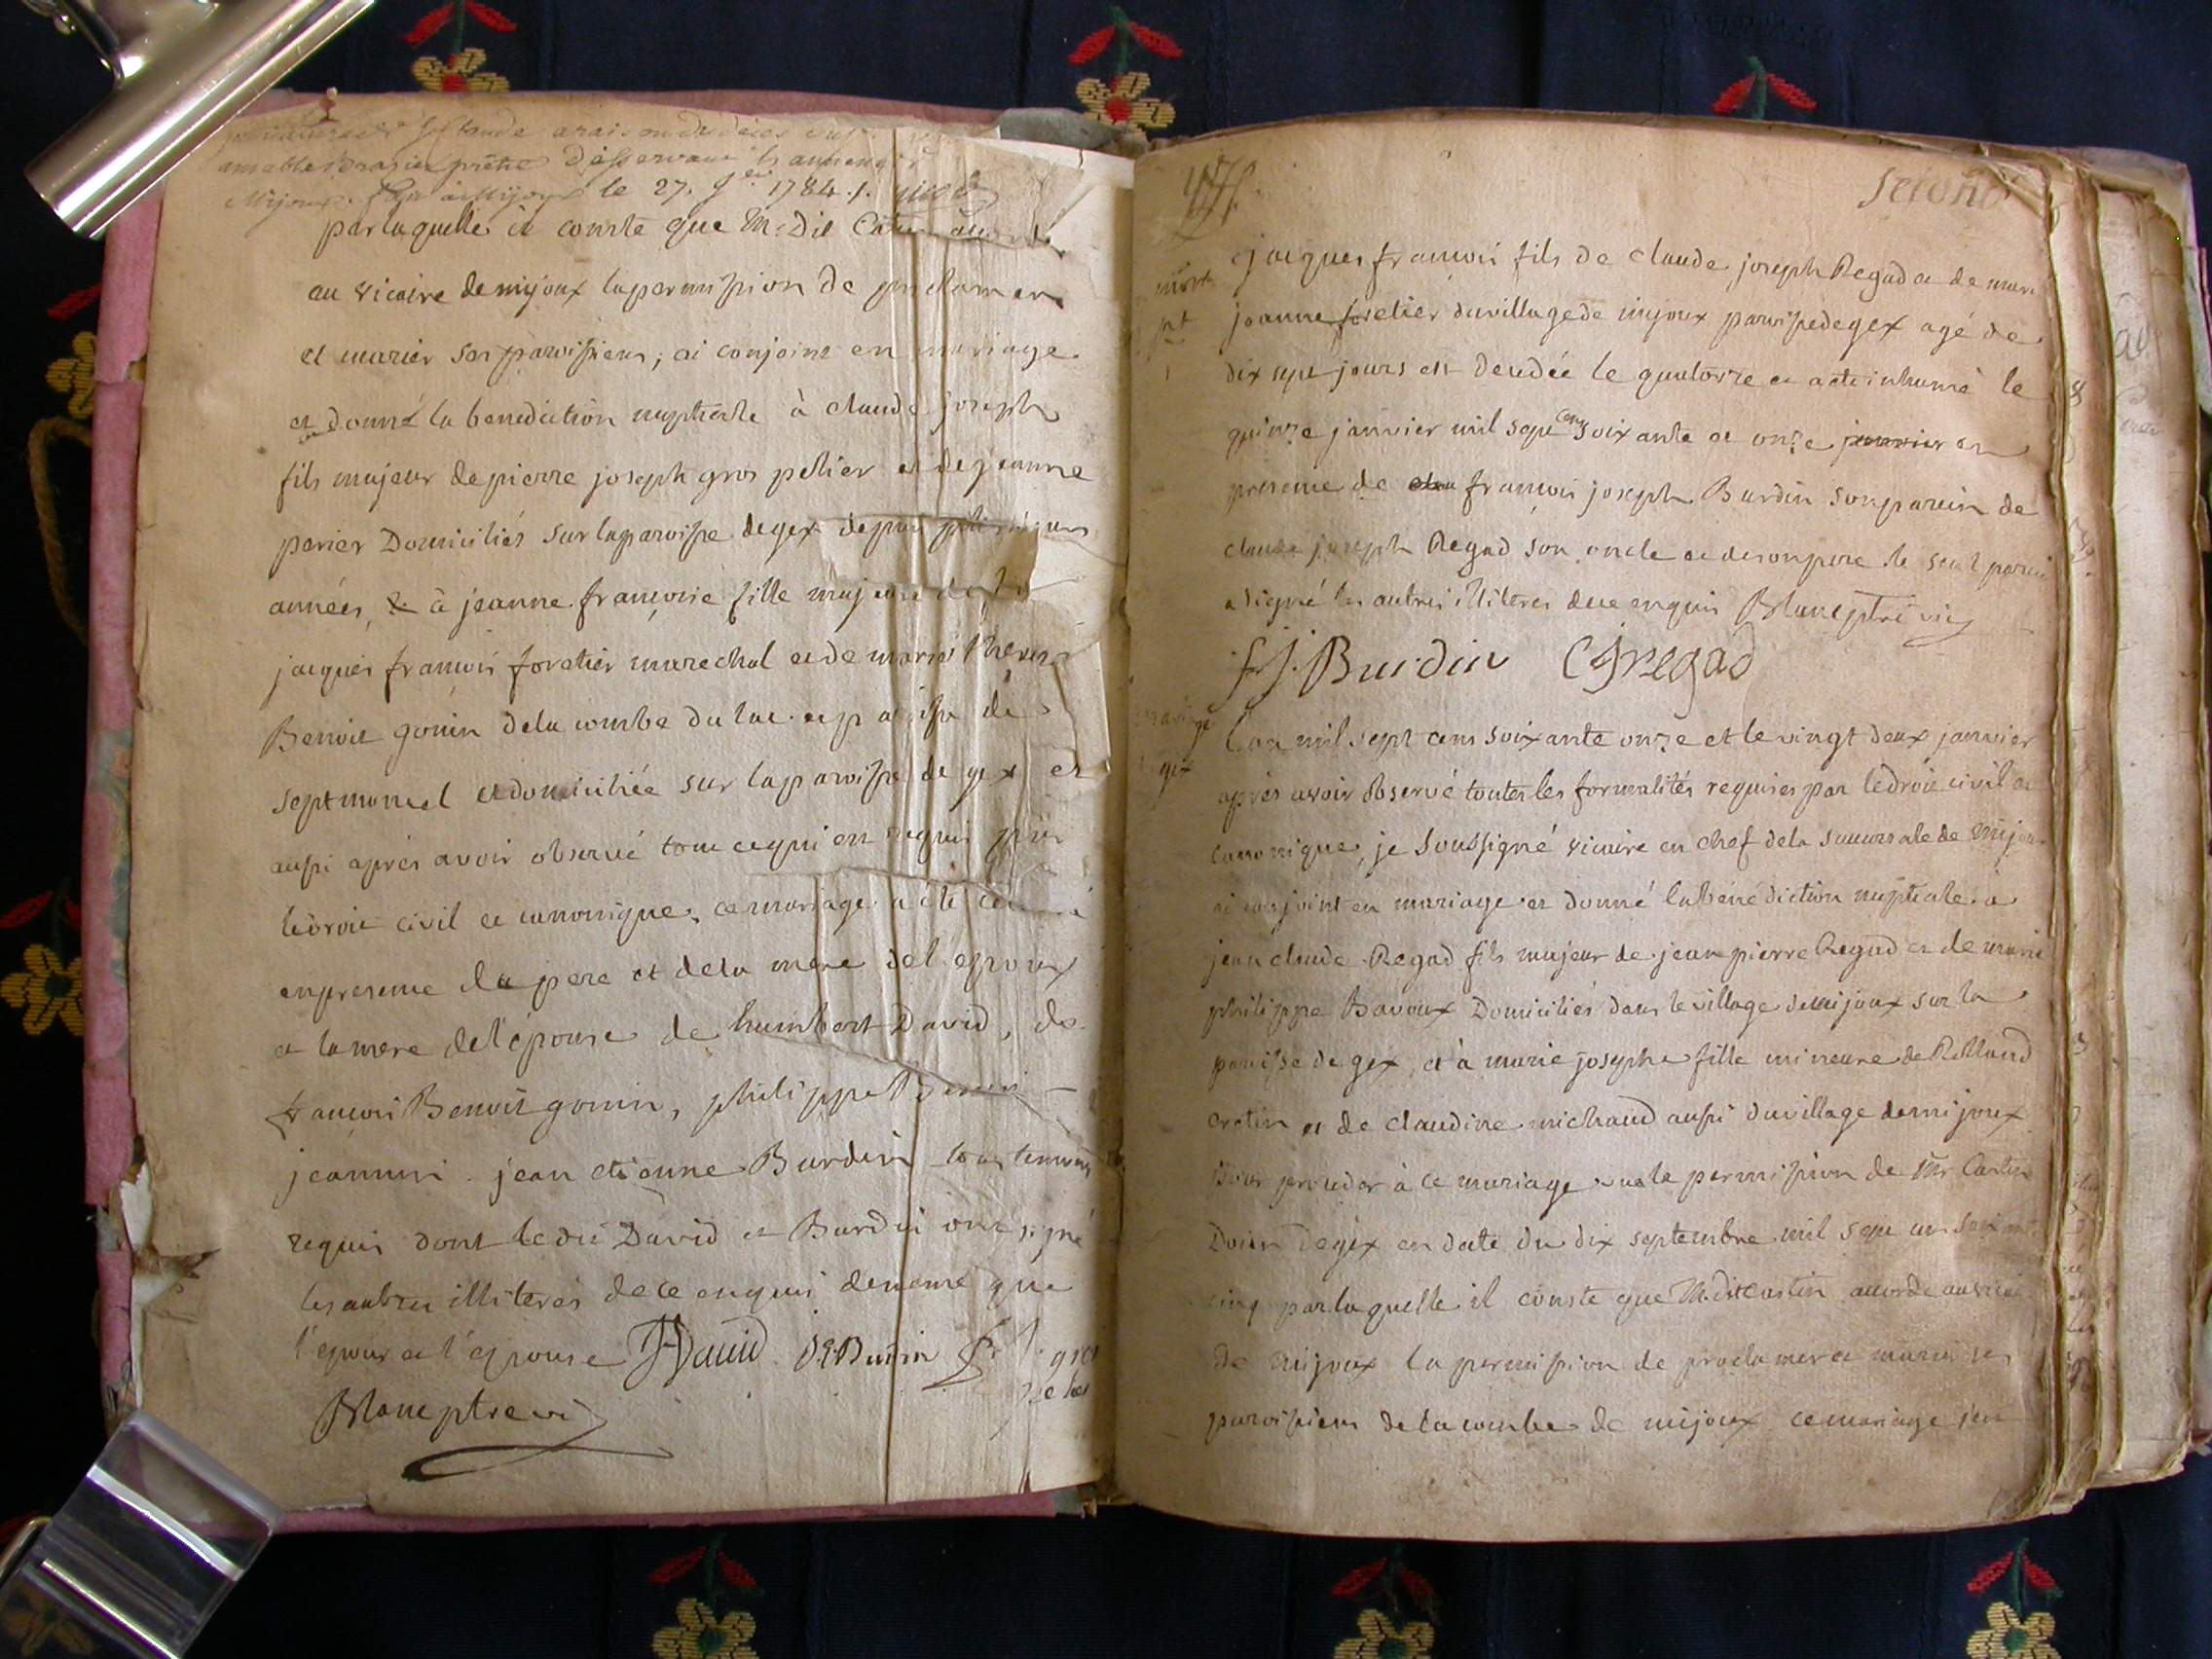 prêtre desservant
Mijoux le 27. 1784.
par laquelle il conste que Mr Dit
au vicaire de mijoux la permission de proclamer
et marier ses paroissiens, ai conjoint en mariage
et donné la benediction nuptiale à claude joseph
fils majeur de pierre joseph gros pelier et de jeanne
perier Domiciliés sur la paroisse de gex depuis plusieurs
années, & à jeanne francoise fille majeure de
jacques francois foretier marechal et de marie
Benoit gonin dela combe du lac et paroisse de
septmoncel et domiciliée sur la paroisse de gex et
aussi après avoir observé tout ce qui est requis par
le droit civil et canonique, ce mariage a été
en presence du pere et dela mere del'epoux
et la mere del'épouse de humbert David, de
francois Benoit gonin, philippe Benoit
jean etienne Burdin tous temoins
requis dont ledit David et Burdin ont signé
les autres illiteres de ce enquis de meme que
l'epoux et l'epouse HDavid JE Burdin
Blanc ptre vic
second
jacques francois fils de claude joseph Regad et de marie
mort
jeanne foretier du village de mijoux paroisse de gex agé de
dix sept jours est decedée le quatorze et a eté inhumé le
quinze janvier mil sept cens soixante et onze janvier en
presence de francois joseph Burdin son parein de
claude joseph Regad son oncle et de son pere le seul parein
a signé les autres illiteres de ce enquis Blanc ptre vic
f j. Burdin CJ regad
mariage
L'an mil sept cens soixante onze et le vingt deux janvier
gex
après avoir observé toutes les formalités requises par le droit civil et
canonique, je soussigné vicaire en chef dela succursale de Mijoux
ai conjoint en mariage et donné la bénédiction nuptiale à
jean claude Regad fils majeur de jean pierre Regad et de marie
philippe Bavoux Domiciliés dans le village de mijoux sur la
paroisse de gex, et à marie josephe fille mineure de Rolland
cretin et de claudine michaud aussi du village de mijoux
pour proceder à ce mariage vu la permission de Mr Castin
Doien de gex en date du dix septembre mil sept cen soixante
cinq par laquelle il conste que Mr dit Castin accorde au vicaire
de mijoux la permission de proclamer et marier ses
paroissiens de la combe de mijoux ce mariage s'en